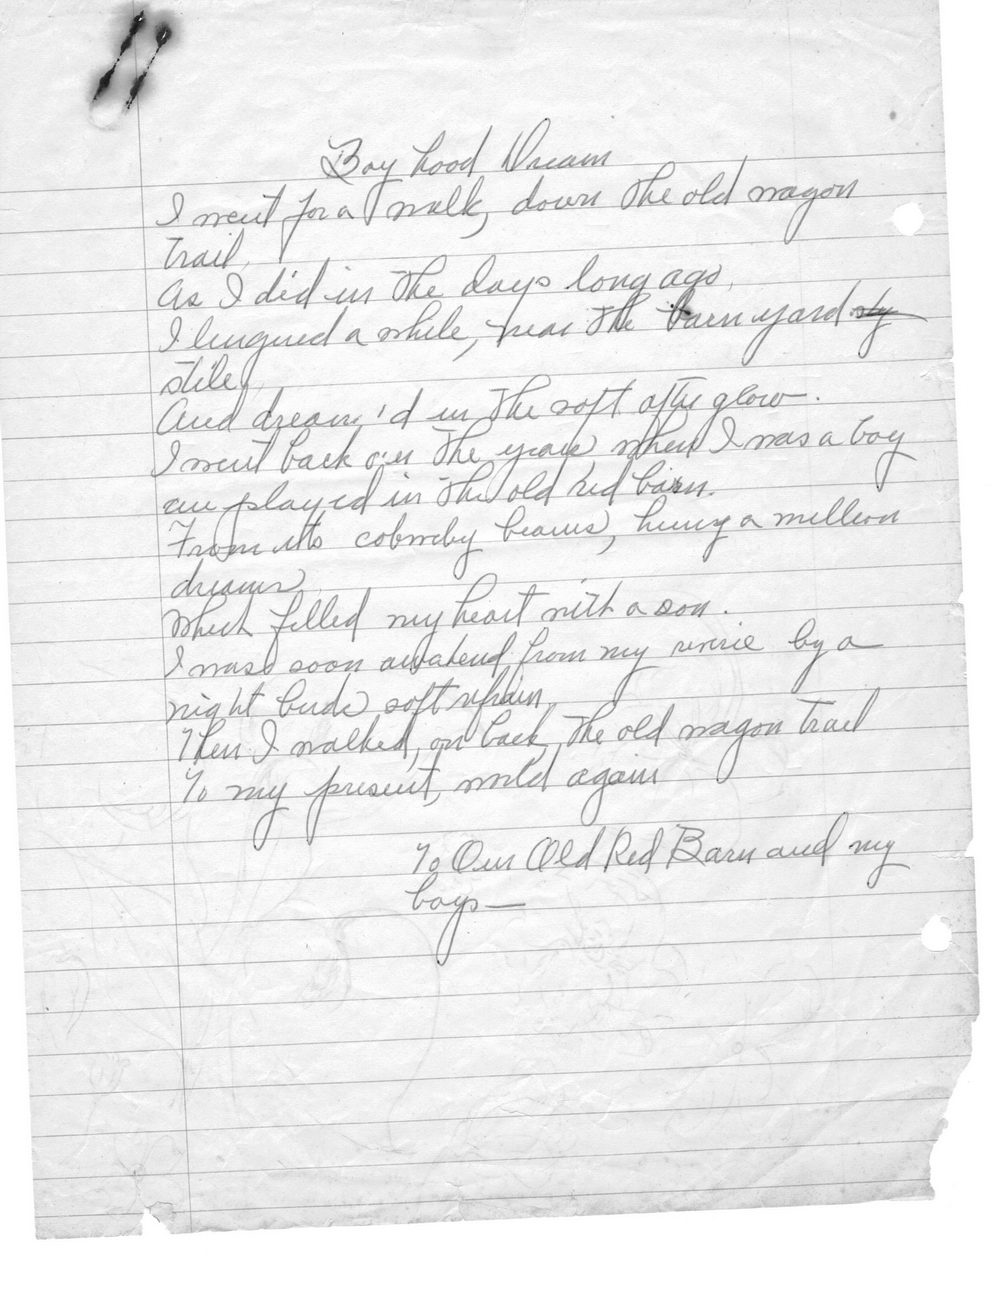 Boy hood Dream
I went for a walk, down the old wagon
trail,
As I did in the days long ago,
I lingered a while, near the barn yard sty
stile,
And dream'd in the soft after glow.
I went back over the years, when I was a boy
an played in the old red barn.
From its cobweby beams, hung a million
dreams
Which filled my heart with a
I was soon awakend from my reverie by a
night birds soft refrain,
Then I walked, on back, the old wagon trail
To my present, world again
To Our Old Red Barn and my
boys—